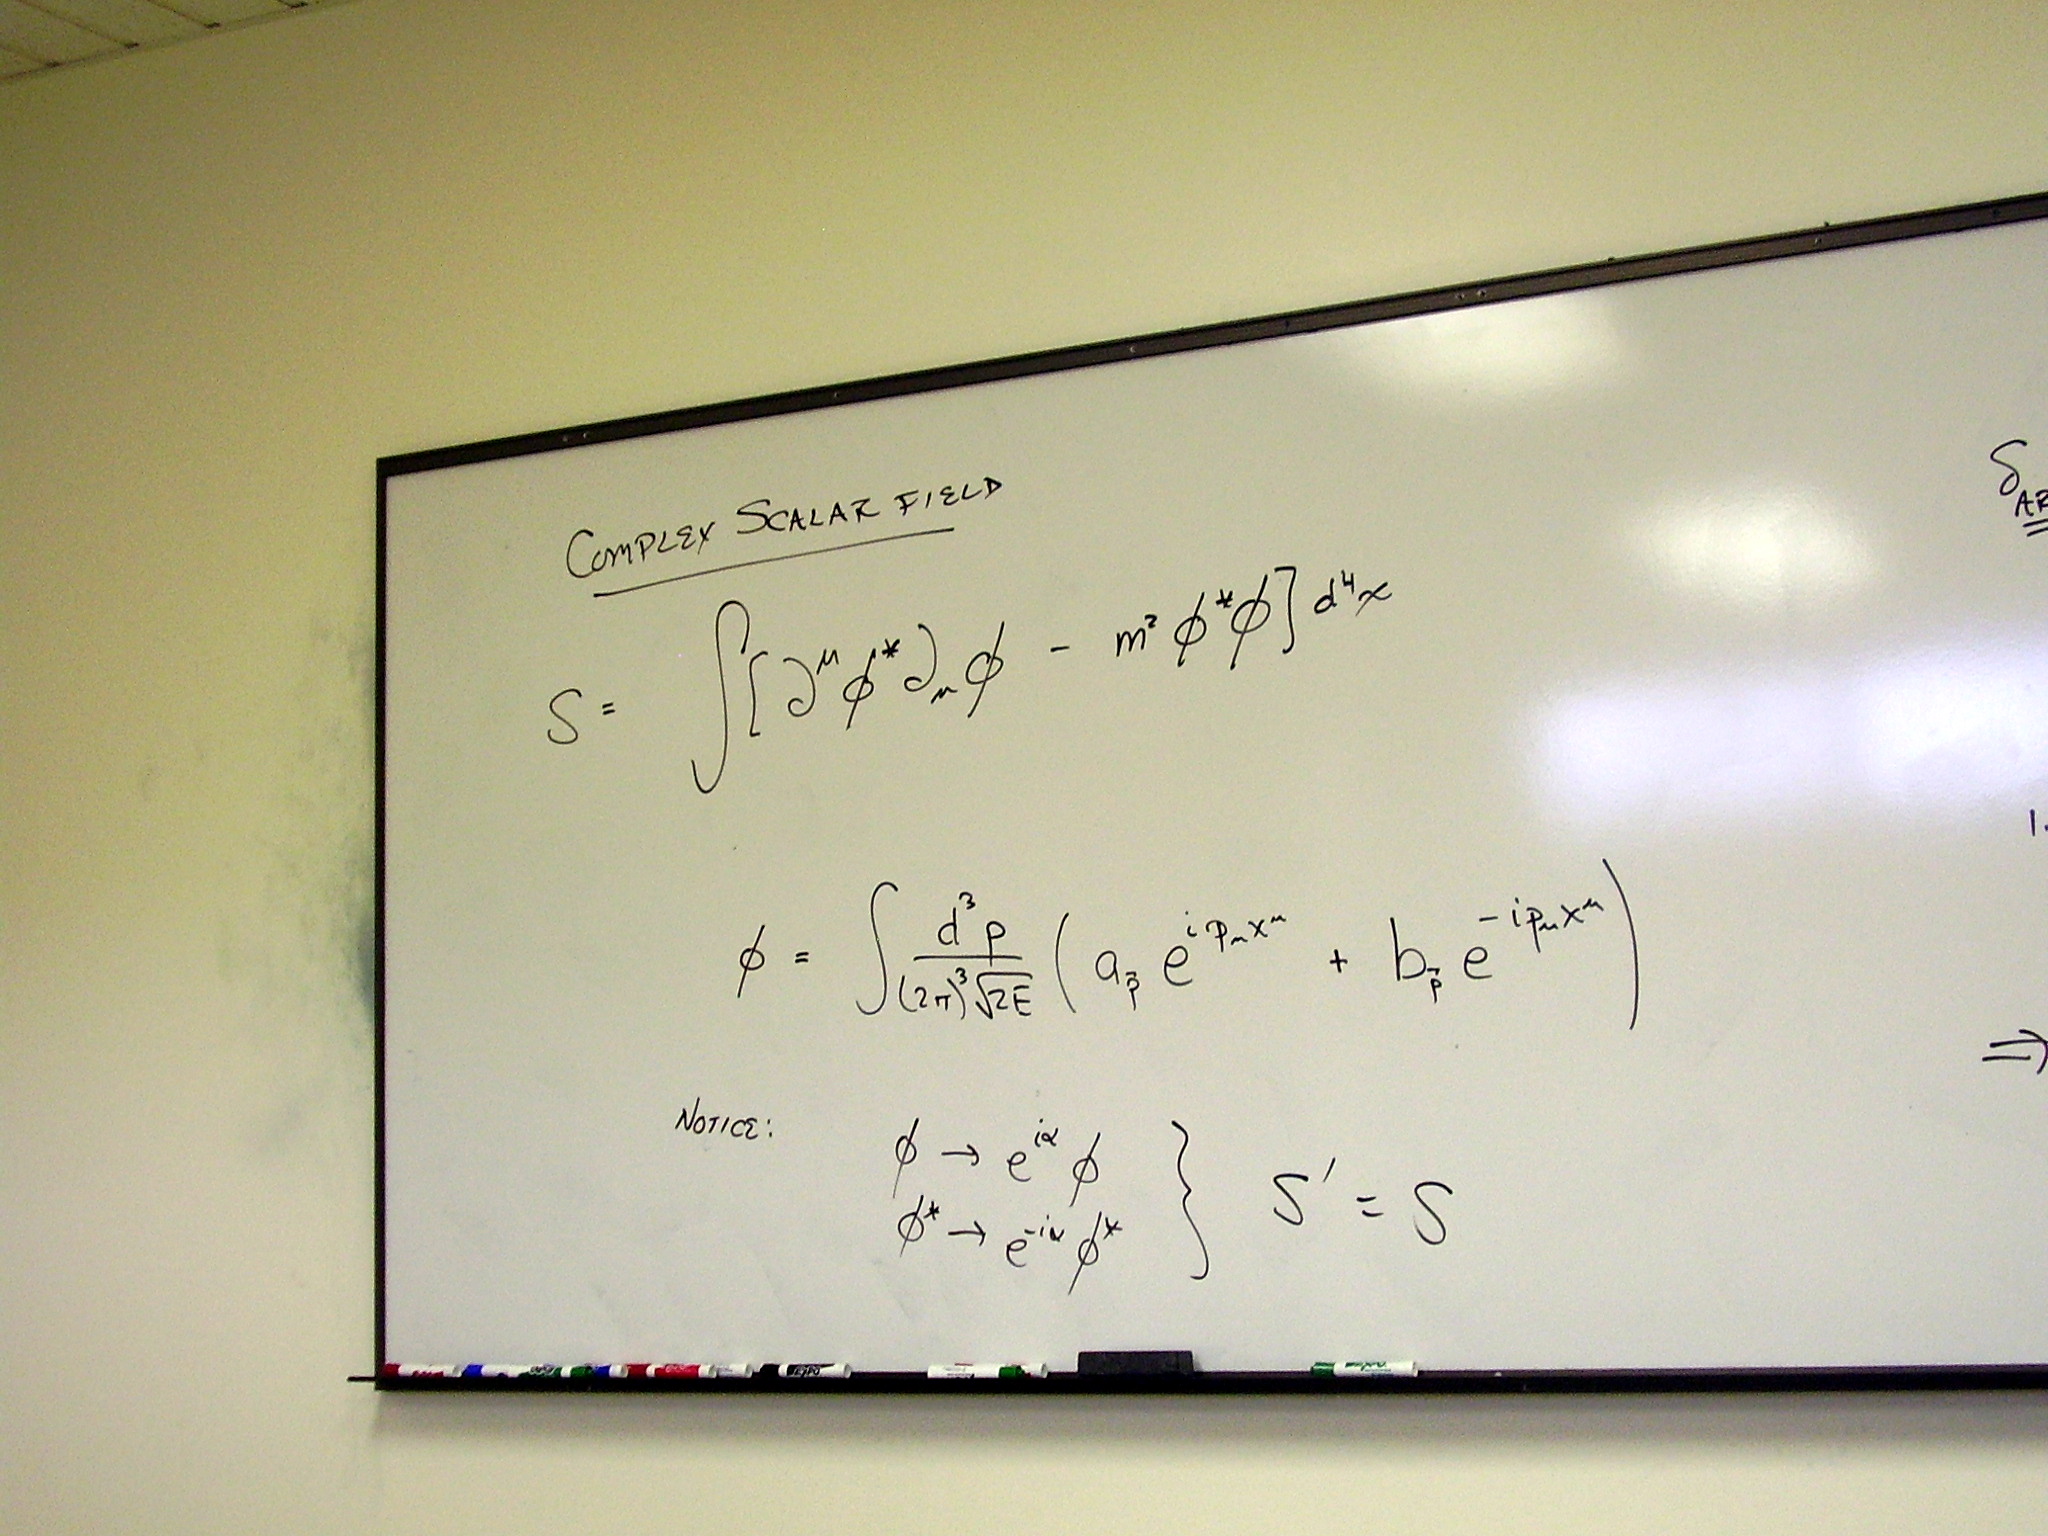 COMPLEX SCALAR FIELD
S = ∫[∂^μ ϕ* ∂_μ ϕ − m² ϕ*ϕ] d⁴x
ϕ = ∫ d³p / (2π)³√2E ( a_p⃗ e^{i p_μ x^μ} + b_p⃗ e^{−i p_μ x^μ} )
NOTICE: ϕ → e^{iα} ϕ
ϕ* → e^{−iα} ϕ* } S′ = S
δ_AR
1.
⇒
EXPO